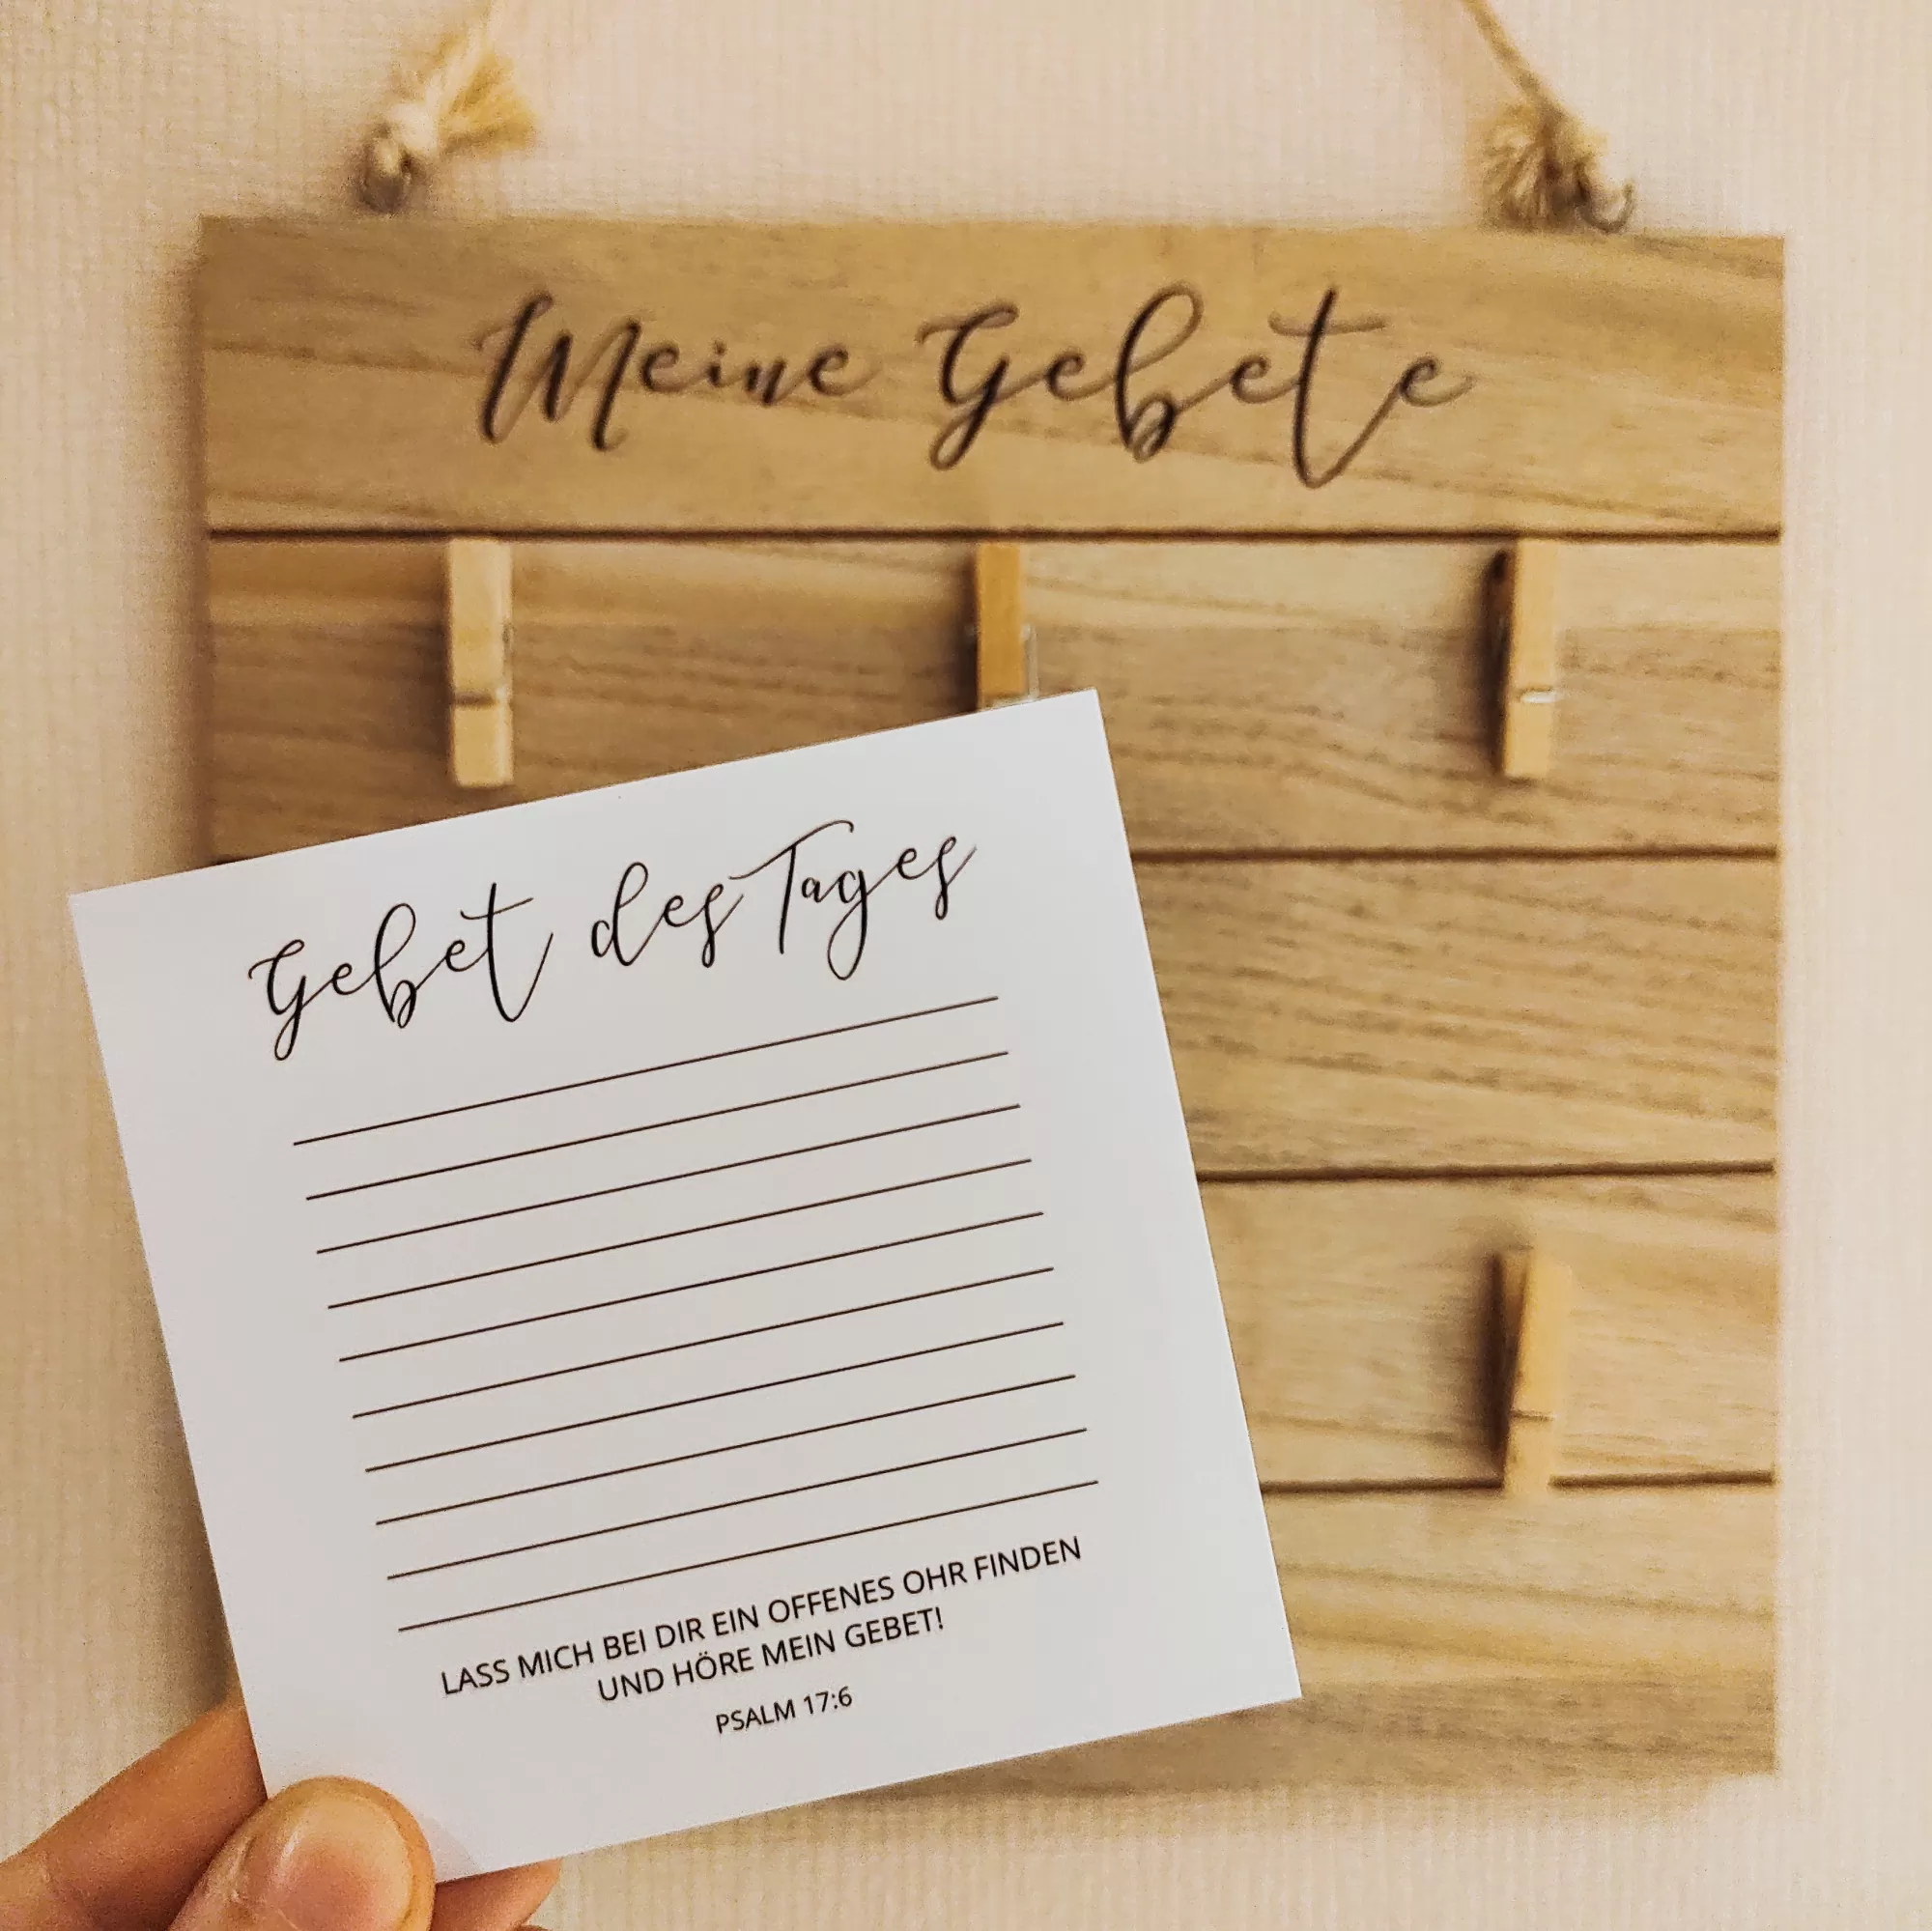 Meine Gebete
Gebet des Tages
LASS MICH BEI DIR EIN OFFENES OHR FINDEN
UND HÖRE MEIN GEBET!
PSALM 17:6